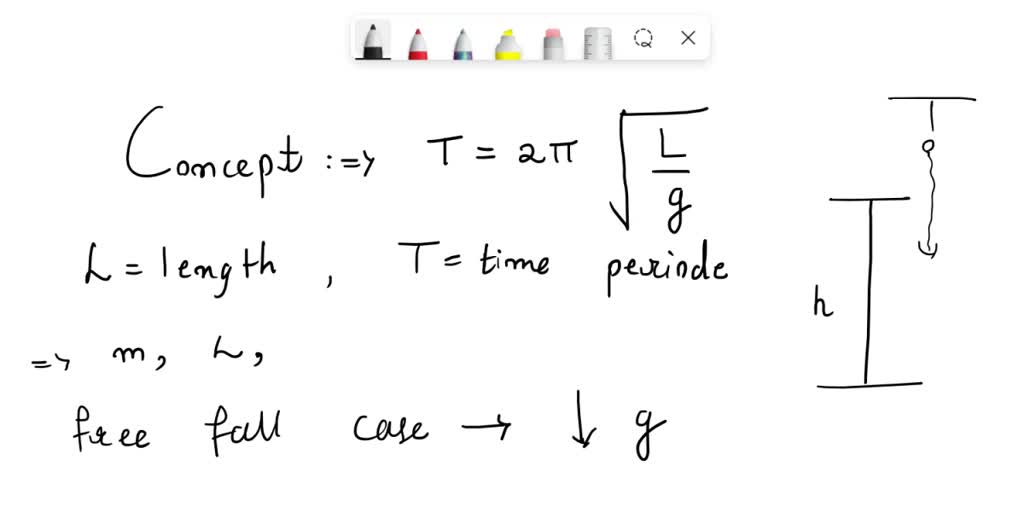 Concept :=> T = 2π √(L/g)
L = length , T = time periode
=> m, L,
free fall case → ↓ g
h